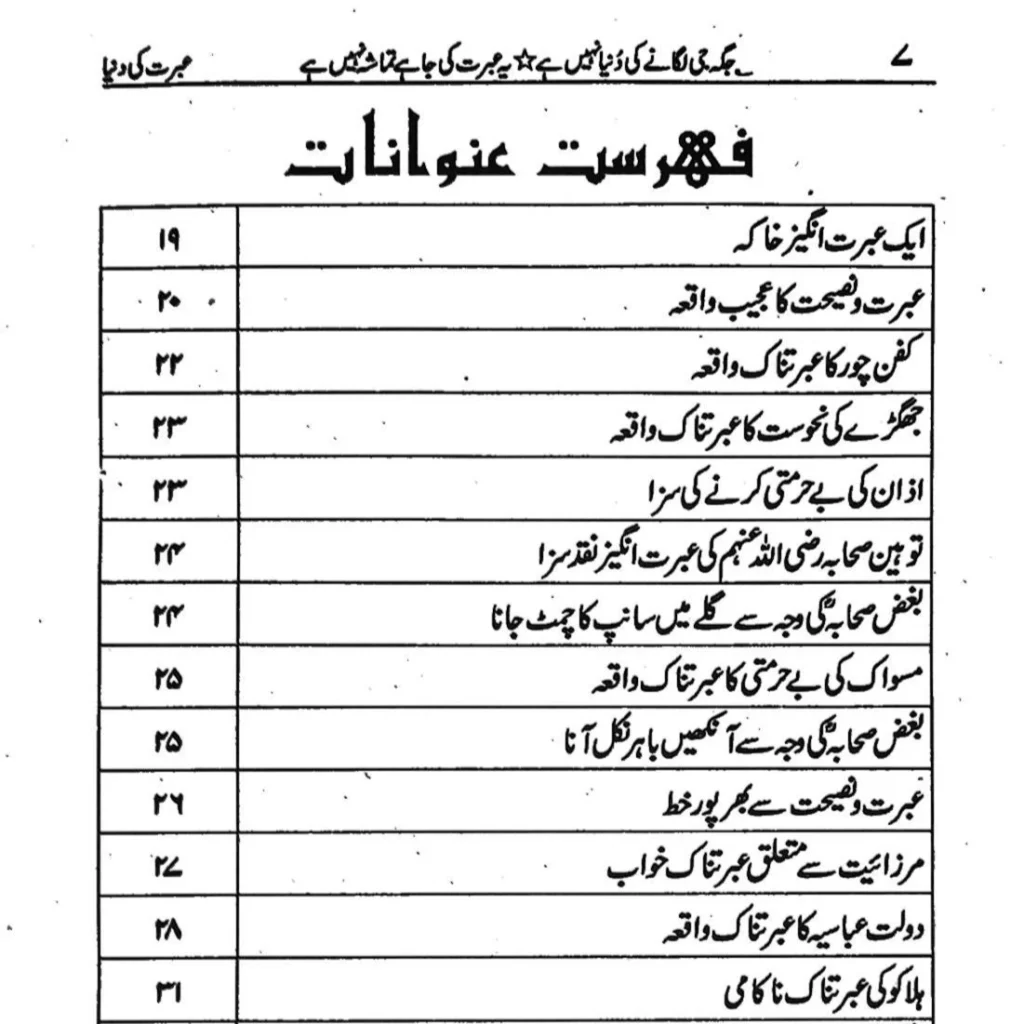 ۷ ؎ جگہ جی لگانے کی دُنیا نہیں ہے ☆ یہ عبرت کی جا ہے تماشہ نہیں ہے عبرت کی دنیا
فہرست عنوانات
ایک عبرت انگیز خاکہ ۱۹
عبرت و نصیحت کا عجیب واقعہ ۲۰
کفن چور کا عبرتناک واقعہ ۲۲
جھگڑے کی نحوست کا عبرتناک واقعہ ۲۳
اذان کی بے حرمتی کرنے کی سزا ۲۳
توہین صحابہ رضی اللہ عنہم کی عبرت انگیز نقد سزا ۲۴
بغض صحابہؓ کی وجہ سے گلے میں سانپ کا چمٹ جانا ۲۴
مسواک کی بے حرمتی کا عبرتناک واقعہ ۲۵
بغض صحابہؓ کی وجہ سے آنکھیں باہر نکل آنا ۲۵
عبرت و نصیحت سے بھرپور خط ۲۶
مرزائیت سے متعلق عبرتناک خواب ۲۷
دولت عباسیہ کا عبرتناک واقعہ ۲۸
ہلاکو کی عبرتناک ناکامی ۳۱